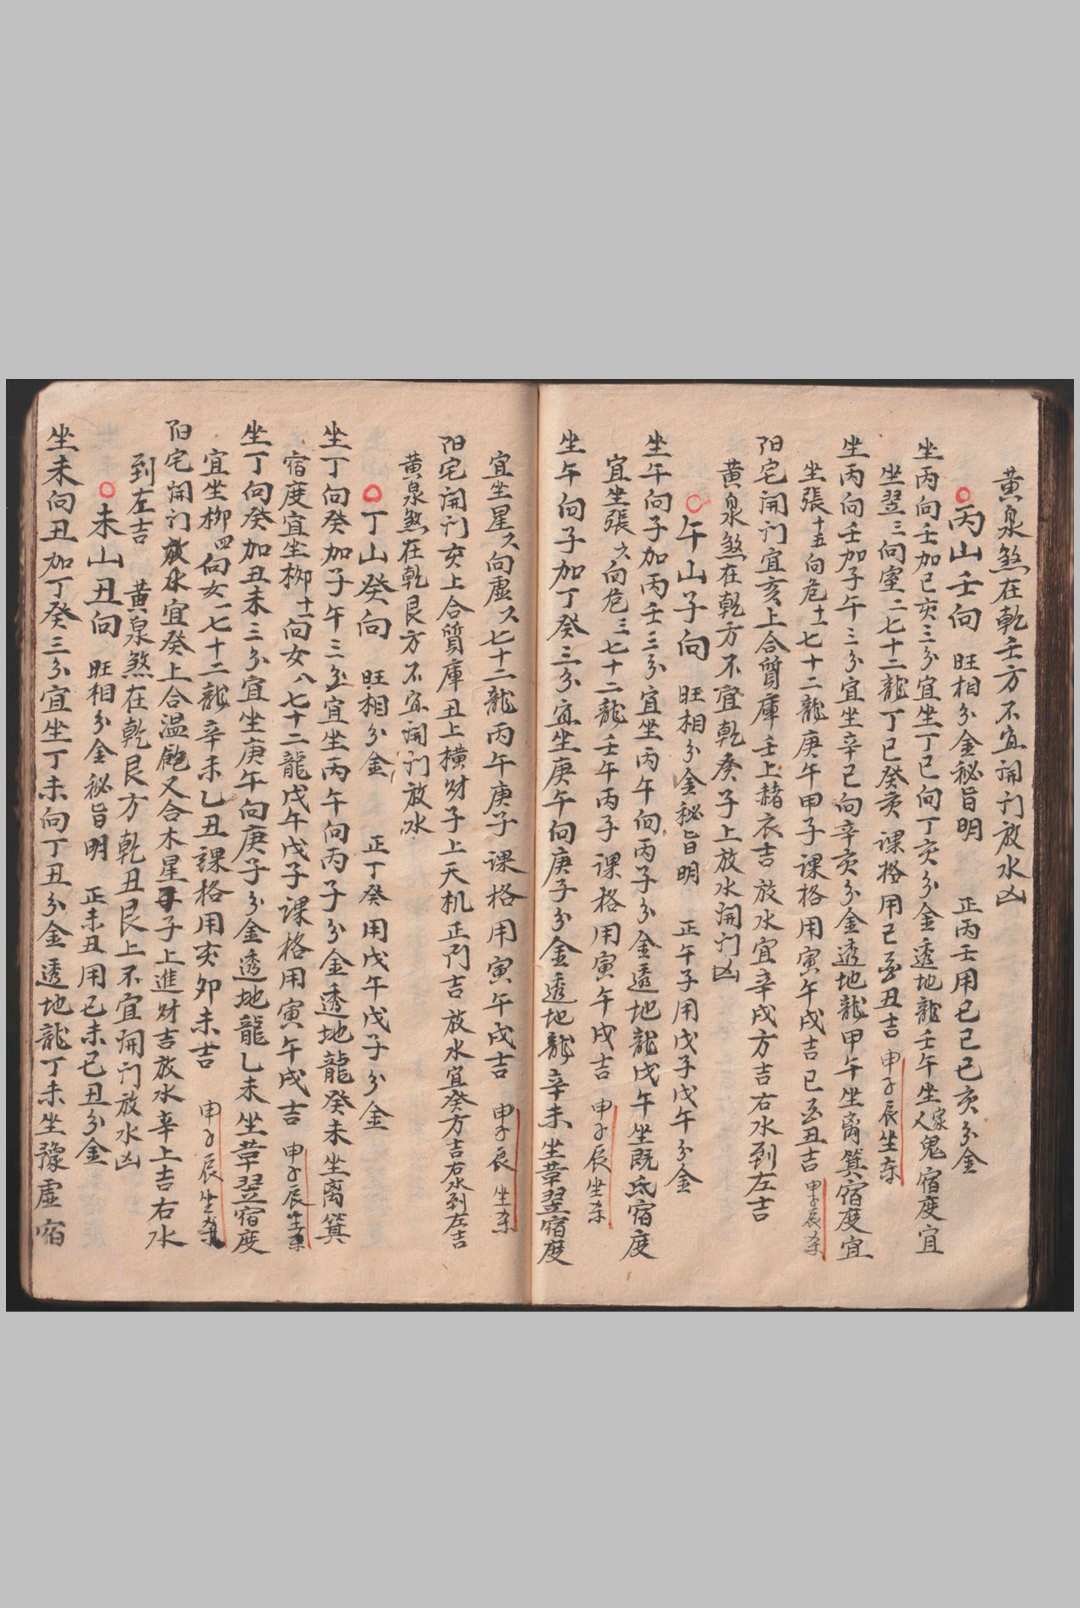 黃泉煞在乾壬方不宜開门放水凶
丙山壬向 旺相分金秘旨明 正丙壬用己巳己亥分金
坐丙向壬加巳亥三分宜坐丁巳向丁亥分金透地龍壬午坐家人鬼宿度宜
坐翌三向室二七十二龍丁巳癸亥課格用巳酉丑吉 申子辰坐杀
坐丙向壬加子午三分宜坐辛巳向辛亥分金透地龍甲午坐离箕宿度宜
坐張十五向危十一七十二龍庚午甲子課格用寅午戌吉巳酉丑吉 申子辰杀
阳宅開门宜亥上合質庫壬上赭衣吉放水宜辛戌方吉右水到左吉
黃泉煞在乾方不宜乾癸子上放水開门凶
午山子向 旺相分金秘旨明 正午子用戊子戊午分金
坐午向子加丙壬三分宜坐丙午向丙子分金透地龍戊午坐既氐宿度
宜坐張六向危三七十二龍壬午丙子課格用寅午戌吉 申子辰坐杀
坐午向子加丁癸三分宜坐庚午向庚子分金透地龍辛未坐革翌宿度
宜坐星六向虛六七十二龍丙午庚子課格用寅午戌吉 申子辰坐杀
阳宅開门亥上合質庫丑上橫財子上天机正门吉放水宜癸方吉右水到左吉
黃泉煞在乾艮方不宜開门放水
丁山癸向 旺相分金 正丁癸用戊午戊子分金
坐丁向癸加子午三分宜坐丙午向丙子分金透地龍癸未坐离箕
宿度宜坐柳十一向女八七十二龍戊午戊子課格用寅午戌吉 申子辰坐杀
坐丁向癸加丑未三分宜坐庚午向庚子分金透地龍乙未坐革翌宿度
宜坐柳四向女一七十二龍辛未乙丑課格用亥卯未吉 申子辰坐杀
阳宅開门放水宜癸上合温飽又合木星子上進財吉放水辛上吉右水
到左吉 黃泉煞在乾艮方乾丑艮上不宜開门放水凶
未山丑向 旺相分金秘旨明 正未丑用己未己丑分金
坐未向丑加丁癸三分宜坐丁未向丁丑分金透地龍丁未坐豫虛宿